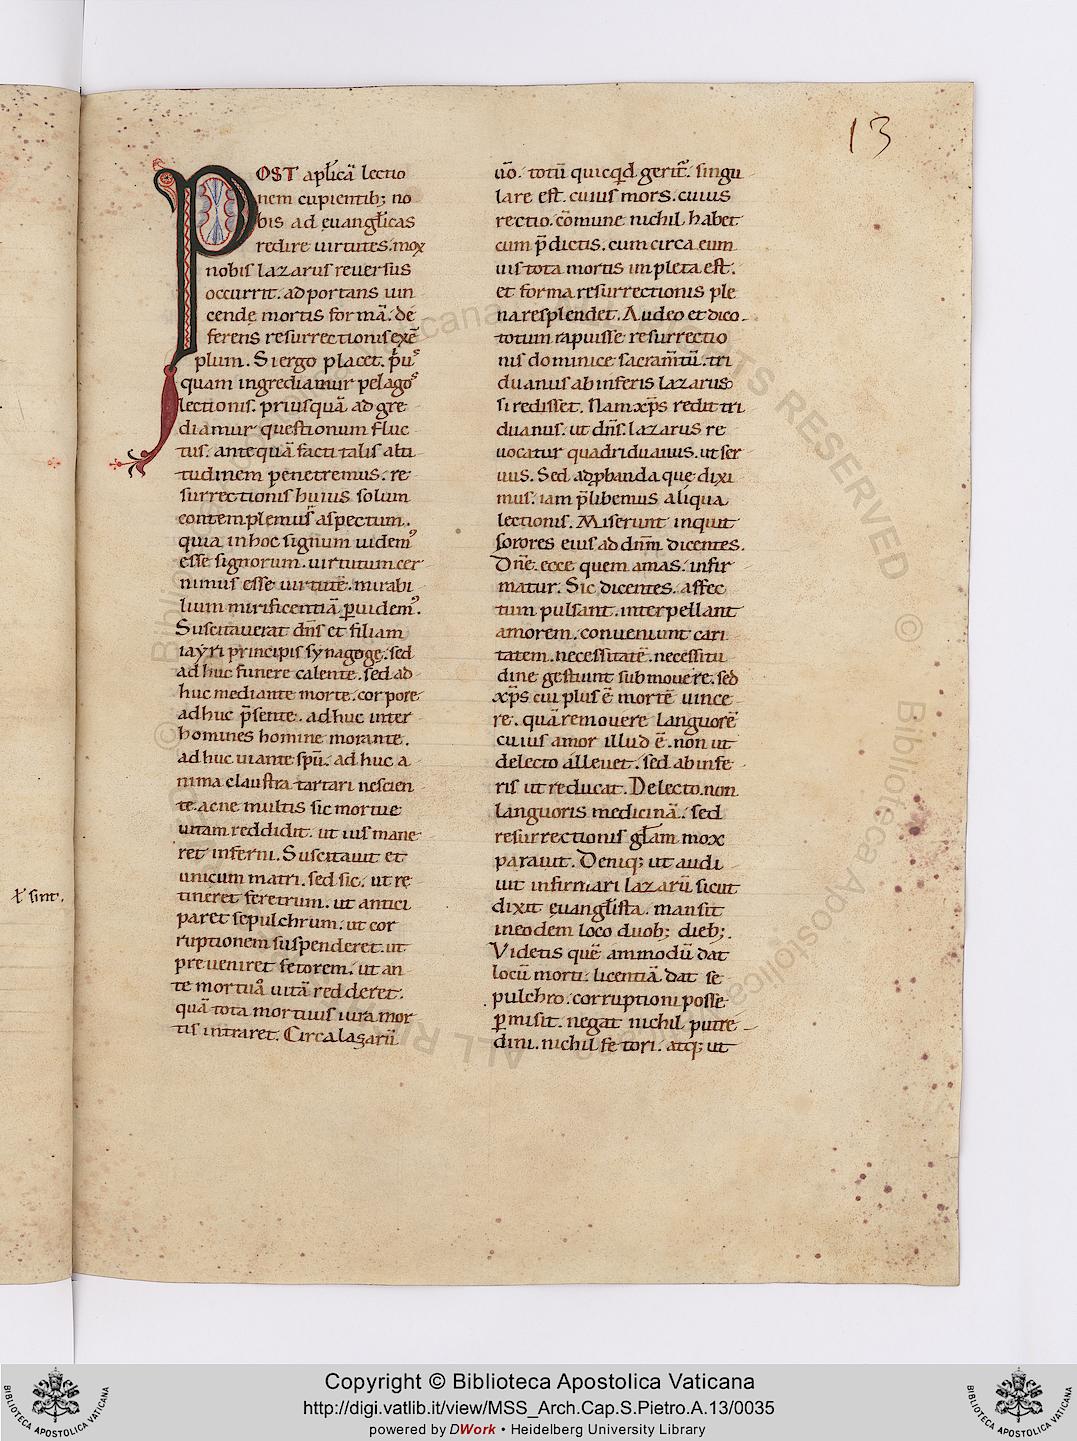 13
POST apl̄icā lectio
nem cupientib; no
bis ad euangl̄icas
redire uirtutes. mox
nobis lazarus reuersus
occurrit. adportans uin
cendę mortis formā. de
ferens resurrectionis exē
plum. Si ergo placet. p̄usꝰ
quam ingrediamur pelagoˢ
lectionis. priusquā adgre
diamur questionum fluc
tus. antequā facti talis alti
tudinem penetremus. re
surrectionis huius solum
contemplemur aspectum.
quia inhoc signum uidemꝰ
esse signorum. uirtutum cer
nimus esse uirtutē. mirabi
lium mirificentiā ꝑuidemꝰ.
Suscitauerat dn̄s et filiam
iayri principis synagogę. sed
adhuc funere calente. sed ad
huc mediante morte. corpore
adhuc p̄sente. adhuc inter
homines homine morante.
adhuc uiante spū. adhuc a
nima claustra tartari nescien
te. ac ne multis sic mortue
uitam reddidit. ut ius mane
ret inferni. Suscitauit et
unicum matri. sed sic. ut re
tineret feretrum. ut antici
paret sepulchrum. ut cor
ruptionem suspenderet. ut
preueniret fetorem. ut an
te mortuo uitā redderet.
quā tota mortuus iura mor
tis intraret. Circa lazarū
uō. totū quicqd gerit̄. singu
lare est. cuius mors. cuius
rectio. cōmune nichil habet
cum p̄dictis. cum circa eum
uis tota mortis impleta est.
et forma resurrectionis ple
na resplendet. Audeo et dico
totum rapuisse resurrectio
nis dominice sacram̄tū. tri
duanus ab inferis lazarus
si redisset. Nam xp̄s redit tri
duanus. ut dn̄s. lazarus re
uocatur quadriduanus. ut ser
uus. Sed adꝓbanda quę dixi
mus. iam p̄libemus aliqua
lectionis. Miserunt inquit
sorores eius ad dn̄m dicentes.
Dn̄e. ecce quem amas. infir
matur. Sic dicentes. affec
tum pulsant. interpellant
amorem. conueniunt cari
tatem. necessitatē. necessitu
dine gestiunt submouere. sed
xp̄s cui plus ē mortē uince
re. quā remouere languorē
cuius amor illud ē. non ut
delecto alleuet. sed ab infe
ris ut reducat. Delecto. non
languoris medicinā. sed
resurrectionis gl̄am mox
parauit. Deniq; ut audi
uit infirmari lazarū sicut
dixit euangl̄ista. mansit
ineodem loco duob; dieb;.
Videtis quē ammodū dat
locū morti. licentiā dat se
pulchro. corruptioni posse
ꝑmisit. negat nichil putre
dini. nichil fetori. atq; ut
sint.
Copyright © Biblioteca Apostolica Vaticana
http://digi.vatlib.it/view/MSS_Arch.Cap.S.Pietro.A.13/0035
powered by DWork • Heidelberg University Library
BIBLIOTECA APOSTOLICA VATICANA
BIBLIOTECA APOSTOLICA VATICANA